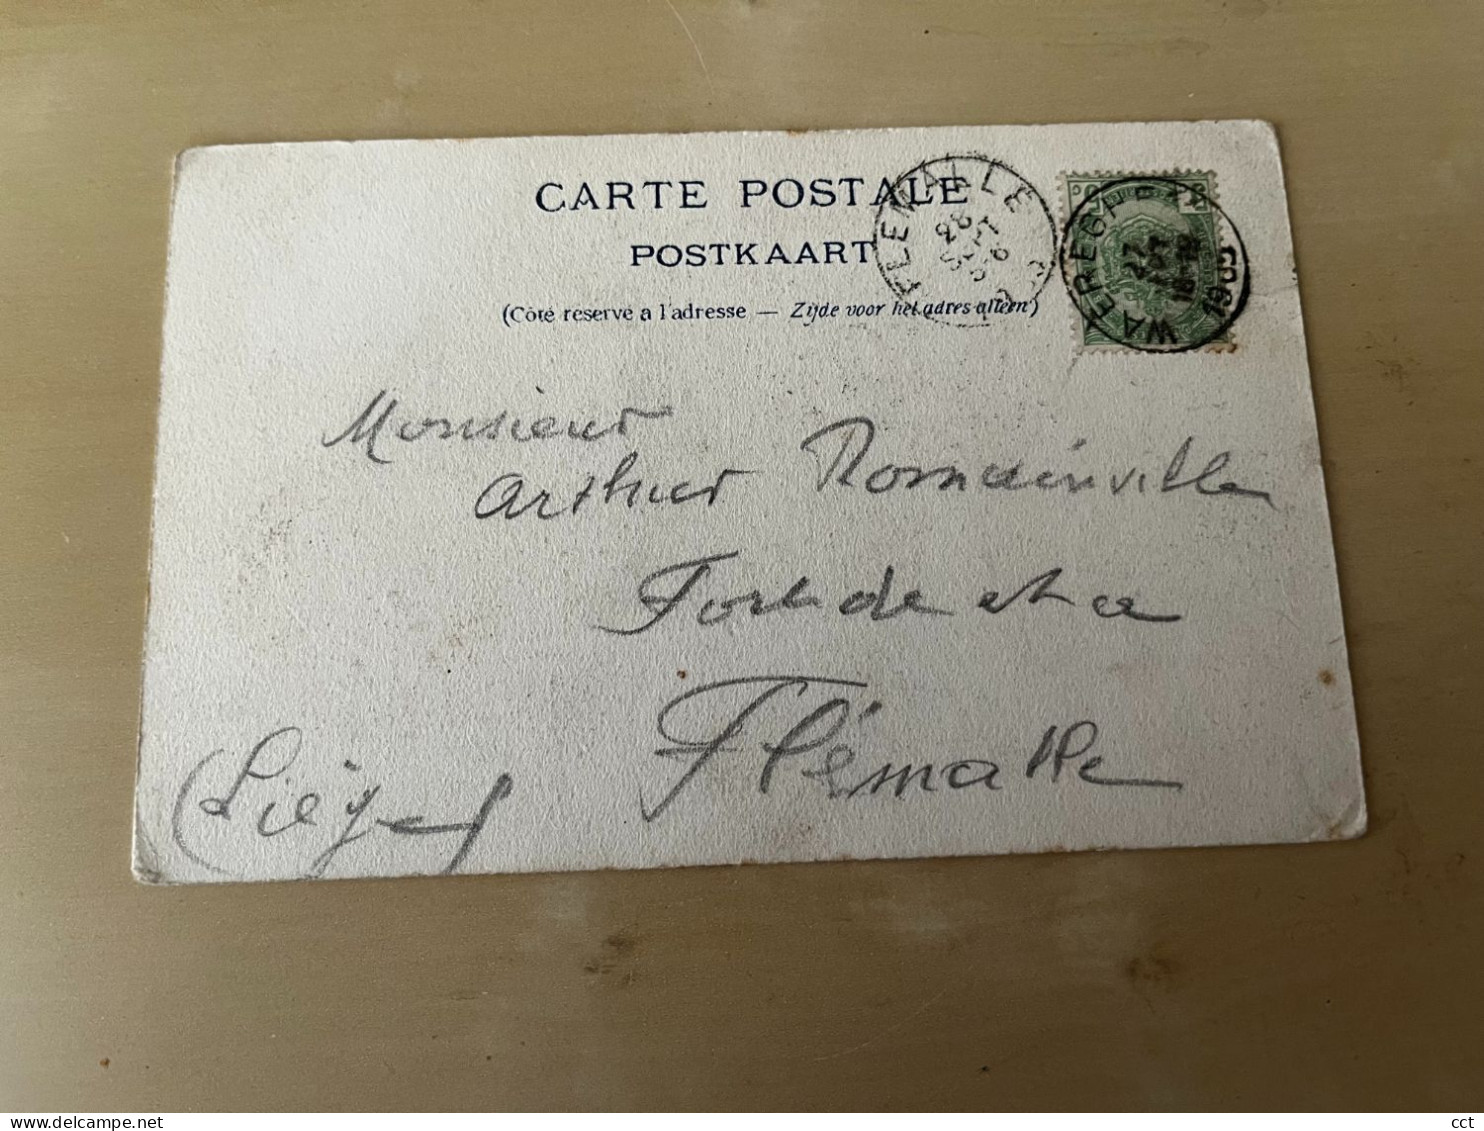 CARTE POSTALE
POSTKAART
(Côté réservé a l'adresse — Zijde voor het adres alleen)
FLEMALLE
28
SEPT
WAEREGHEM
27
1903
5 5
Monsieur
Arthur Romainville
Fort de
Flémalle
(Liége)
www.delcampe.net
cct